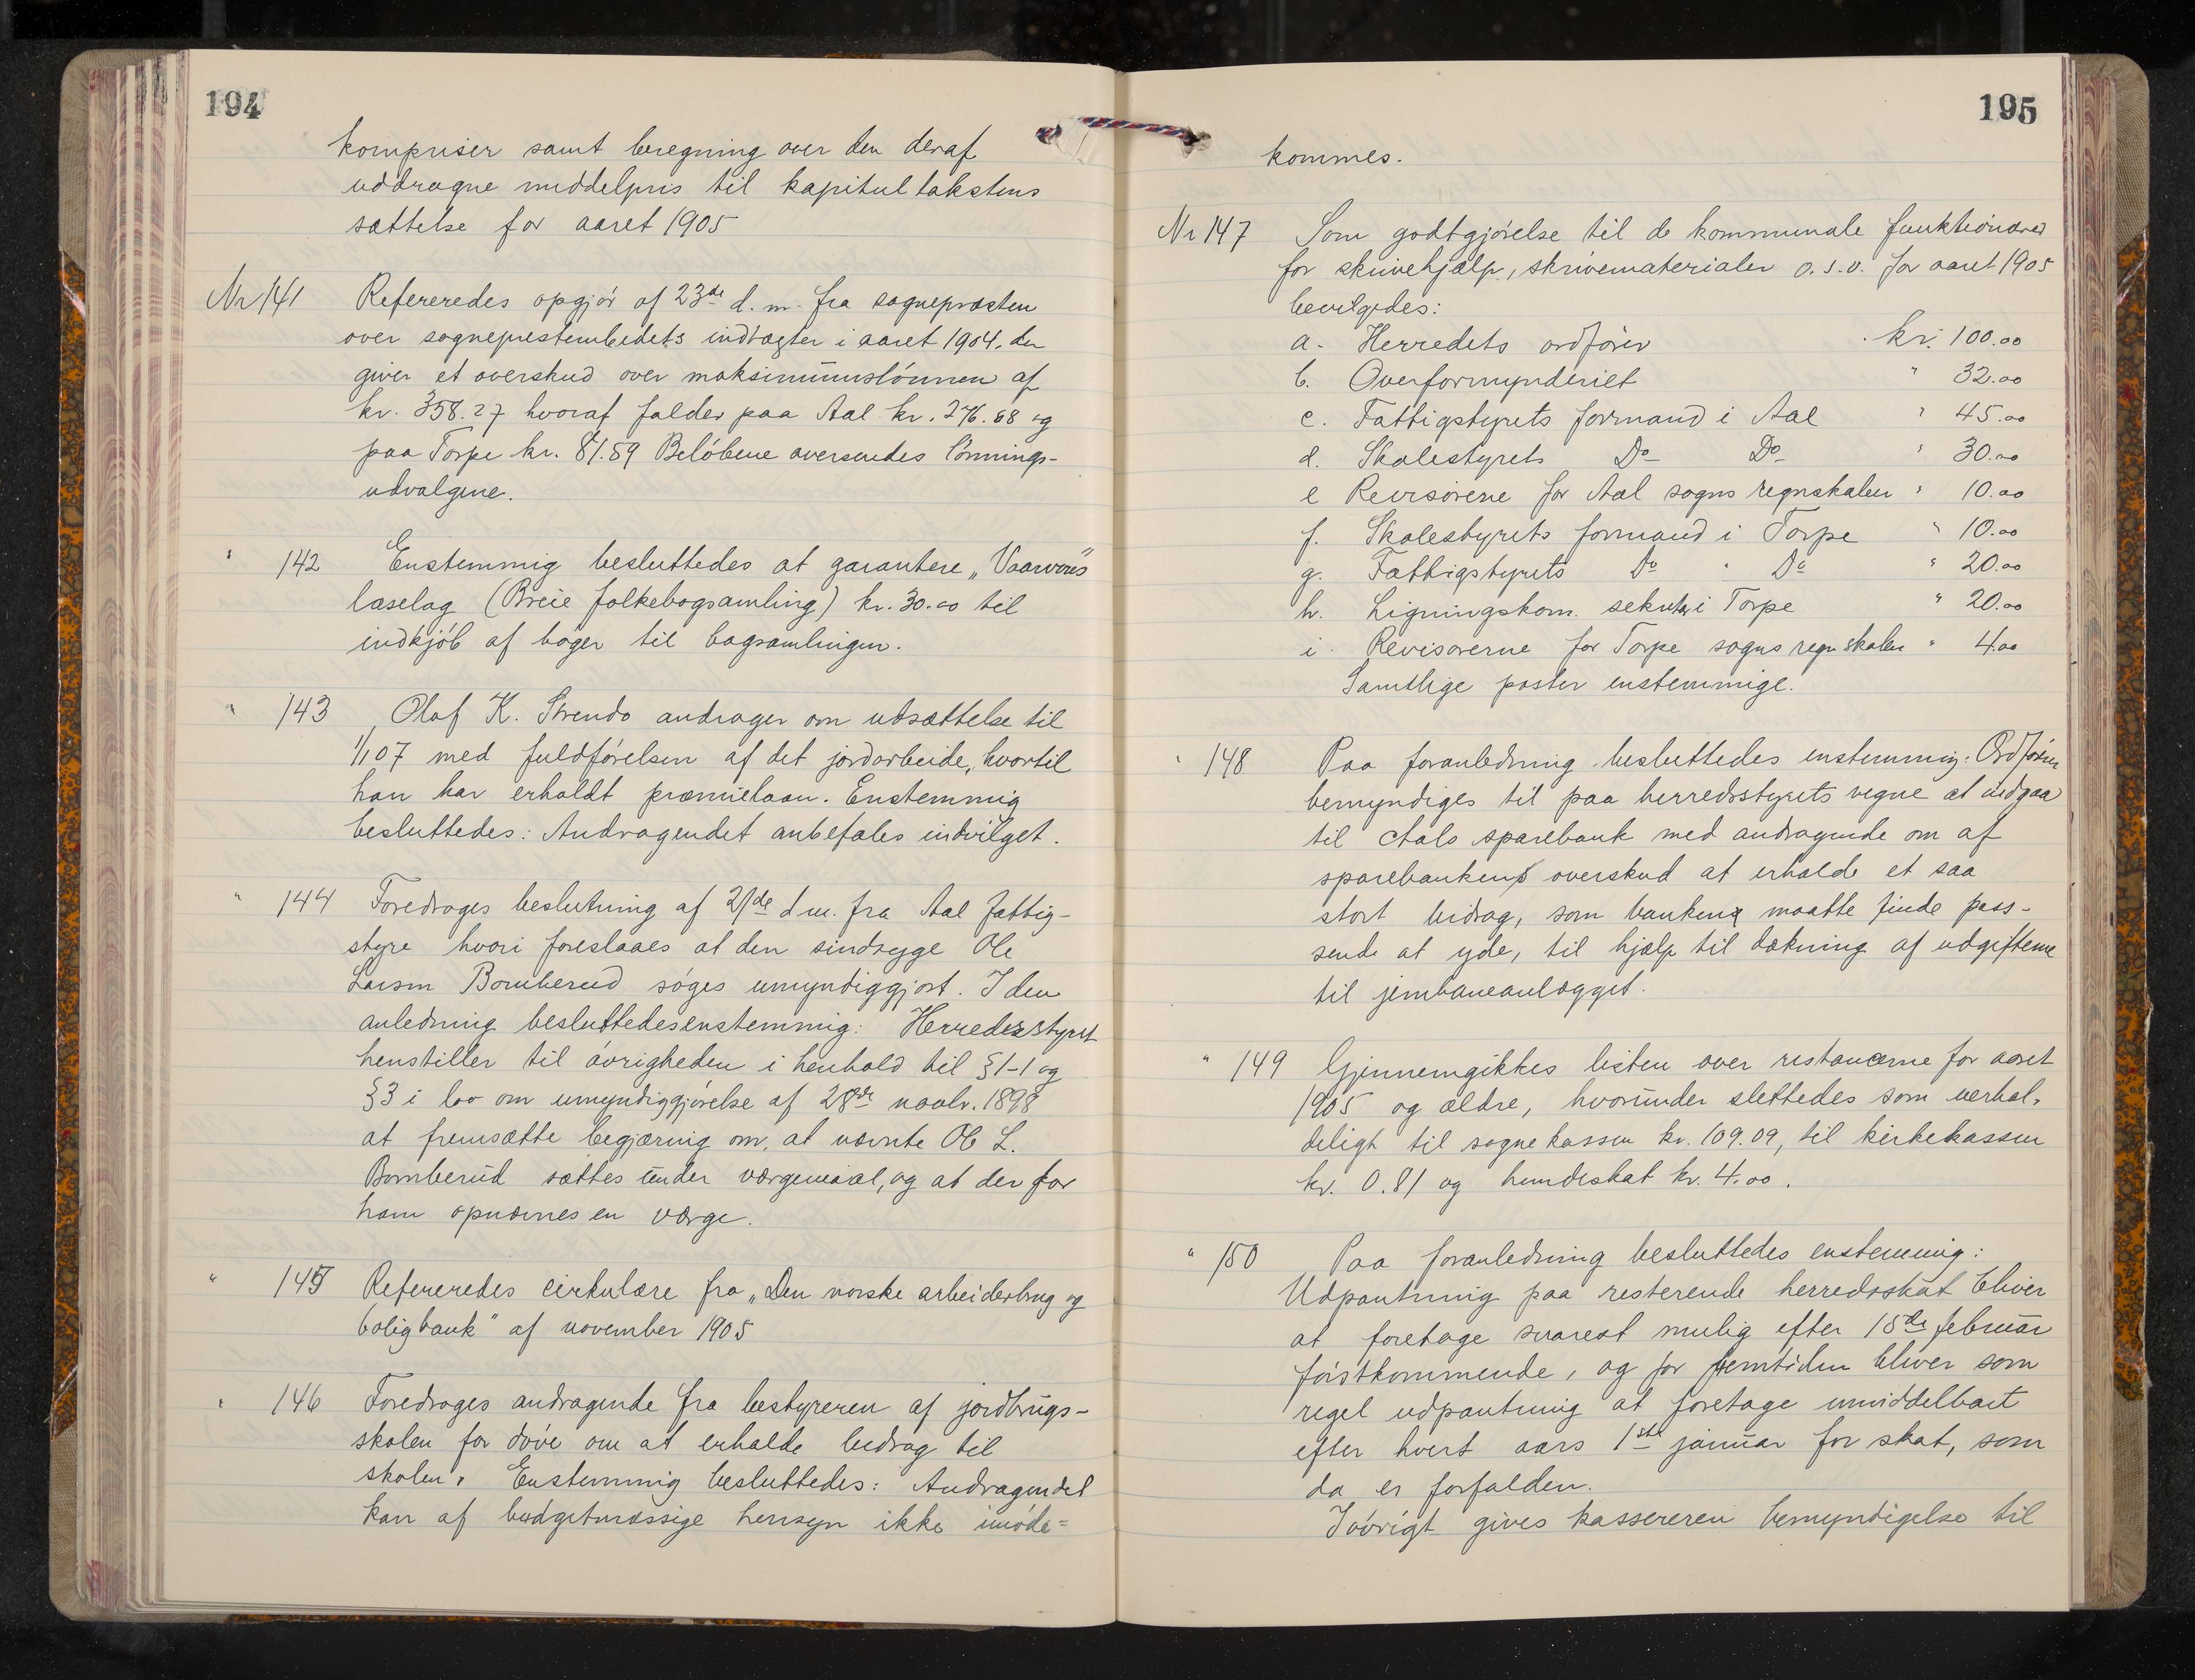 194
kornpriser samt beregning over den deraf
uddragne middelpris til kapitultakstens
sættelse for aaret 1905
Nr 141 Refereredes opgjør af 23de d. m. fra sognepræsten
over sogneprestembedets indtægter i aaret 1904. der
giver et overskud over maksimumslønnen af
kr. 358.27 hvoraf falder paa Aal kr. 276.68 og
paa Torpe kr. 81.59 Beløbene oversendes lønnings-
udvalgene.
" 142 Enstemmig besluttedes at garantere „Vaarvons"
læselag (Breie folkebogsamling) kr. 30.00 til
indkjøb af bøger til bogsamlingen.
" 143 Olaf K. Strendo andrager om udsættelse til
1/1 07 med fuldførelsen af det jordarbeide, hvortil
han har erholdt præmielaan. Enstemmig
besluttedes: Andragendet anbefales indvilget.
" 144 Foredroges beslutning af 21de d m. fra Aal fattig-
styre hvori foreslaaes at den sindssyge Ole
Larsen Bomberud søges umyndiggjort. I den
anledning besluttedes enstemmig: Herredsstyret
henstiller til øvrigheden i henhold til § 1-1 og
§ 3 i lov om umyndiggjørelse af 28de novbr. 1898
at fremsætte begjæring om, at nævnte Ole L.
Bomberud sættes under værgemaal, og at der for
ham opnævnes en værge.
" 145 Refereredes cirkulære fra „Den norske arbeiderbrug og
boligbank" af november 1905
" 146 Foredroges andragende fra bestyreren af jordbrugs-
skolen for døve om at erholde bidrag til
skolen. Enstemmig besluttedes: Andragendet
kan af budgetmæssige hensyn ikke imøde=
195
kommes.
Nr 147 Som godtgjørelse til de kommunale funktionærer
for skrivehjælp, skrivematerialer o. s. v. for aaret 1905
bevilgedes:
a. Herredets ordfører kr. 100.00
b. Overformynderiet " 32.00
c. Fattigstyrets formand i Aal " 45.00
d. Skolestyrets Do Do " 30.00
e Revisorerne for Aal sogns regnskaber " 10.00
f. Skolestyrets formand i Torpe " 10.00
g. Fattigstyrets Do " Do " 20.00
h. Ligningskom. sekretær i Torpe " 20.00
i. Revisorerne for Torpe sogns regnskaber " 4.00
Samtlige poster enstemmige.
" 148 Paa foranledning besluttedes enstemmig: Ordføreren
bemyndiges til paa herredsstyrets vegne at indgaa
til Aals sparebank med andragende om af
sparebankens overskud at erholde et saa
stort bidrag, som banken maatte finde pass-
sende at yde, til hjælp til dækning af udgifterne
til jernbaneanlægget.
" 149 Gjennemgikkes listen over restancerne for aaret
1905 og ældre, hvorunder slettedes som uerhol-
deligt til sognekassen kr. 109.09, til kirkekassen
kr. 0.81 og hundeskat kr. 4.00.
" 150 Paa foranledning besluttedes enstemmig:
Udpantning paa resterende herredsskat bliver
at foretage snarest mulig efter 15de februar
førstkommende, og for fremtiden bliver som
regel udpantning at foretage umiddelbart
efter hvert aars 1ste januar for skat, som
da er forfalden.
Iøvrigt gives kassereren bemyndigelse til